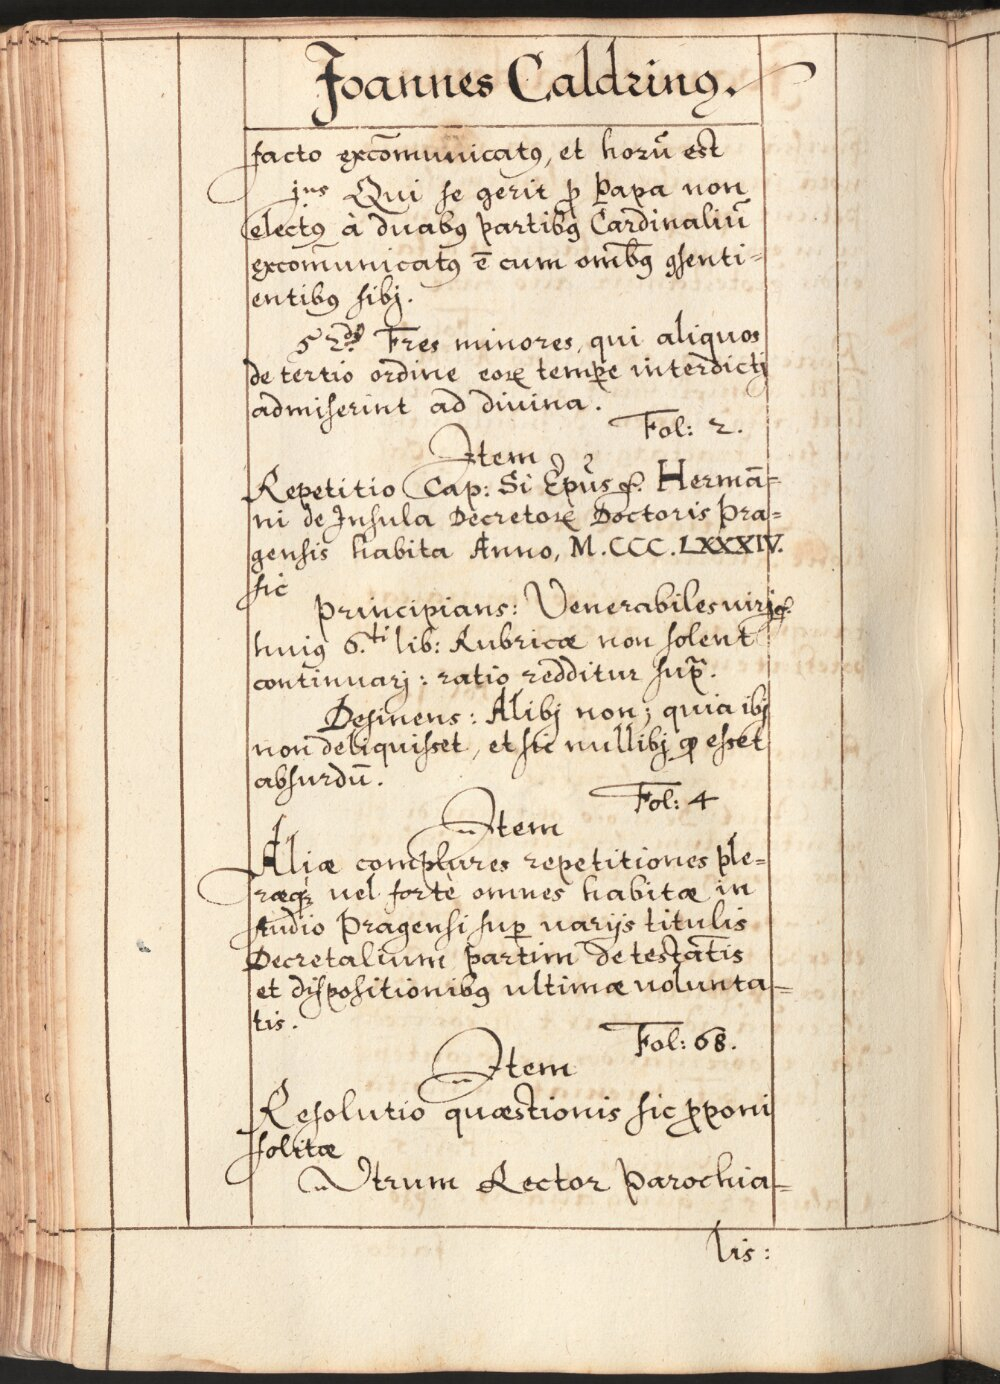 Joannes Caldrinꝰ.
facto excōmunicatꝰ, et horū est
jus Qui se gerit ꝓ Papa non
electꝰ à duabꝰ partibꝰ Cardinaliū
excōmunicatꝰ ē cum om̄ibꝰ ꝯsenti=
entibꝰ sibj.
52dꝰ Fres minores, qui aliquos
de tertio ordine eoꝝ temp̄e interdictj
admiserint ad divina.
Fol: 2.
Item
Repetitio Cap: Si Ep̄us &. Hermā=
ni de Insula Decretoꝝ Doctoris Pra=
gensis habita Anno, M.CCC.LXXXIV.
sic
principians: Venerabiles virj &.
huiꝰ 6.ti lib: Rubricæ non solent
continuarj: ratio redditur sup̄.
Desinens: Alibj non; quia ibj
non deliquisset, et sic nullibj ꝙ esset
absurdū.
Fol: 4
Item
Aliæ complures repetitiones ple=
ræqꝫ vel fortè omnes habitæ in
studio Pragensi suꝑ varijs titulis
Decretalium partim de testātis
et dispositionibꝰ ultimæ volunta=
tis.
Fol: 68.
Item
Resolutio quæstionis sic ꝓponi
solitæ
Utrum Rector Parochia=
lis: